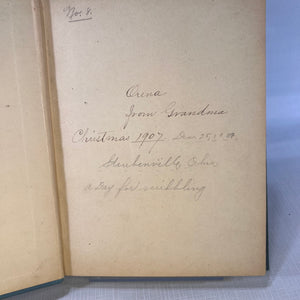 No. 8.
Orena
from Grandma
Christmas 1907 Dec. 25, 1907
Steubenville, Ohio
a day for scribbling